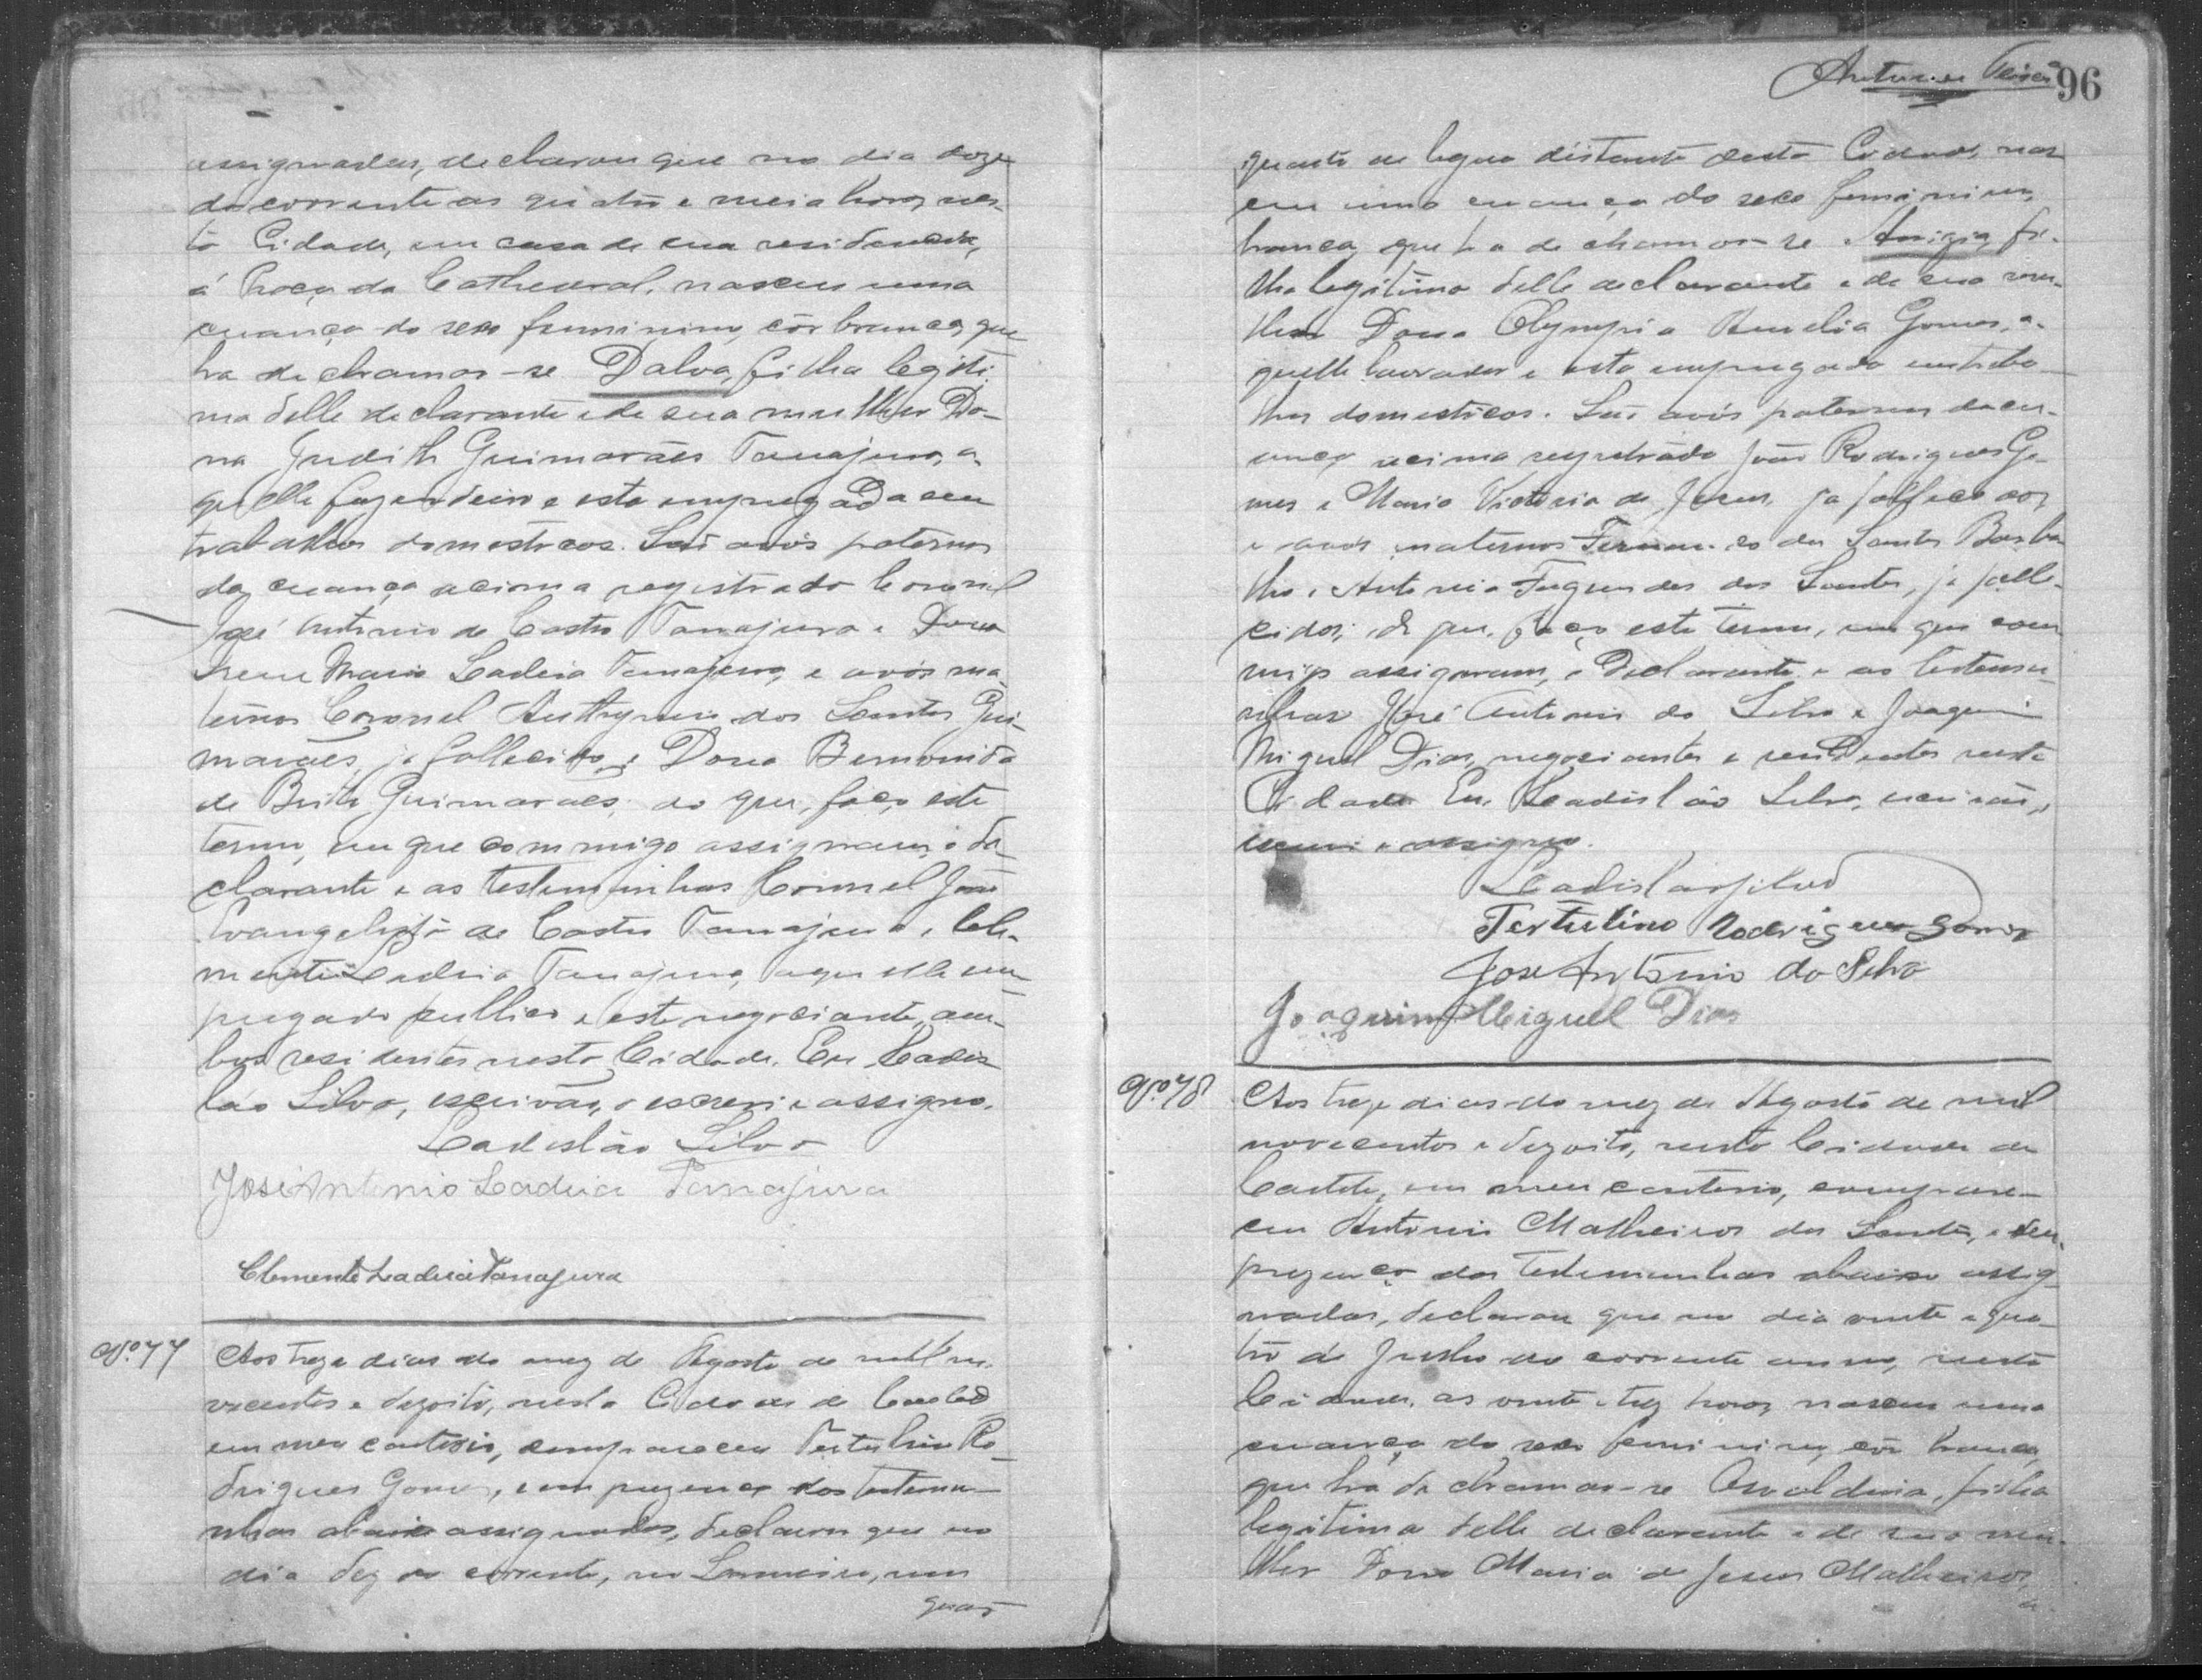 assignadas, declarou que no dia doze
do corrente as quatro e meia horas, nes-
ta Cidade, em casa de sua residencia,
á Praça da Cathedral, nasceu uma
creança do sexo feminino, côr branca, que
ha de chamar-se Dalva, filha legiti-
ma delle declarante e de sua mulher Do-
na Judith Guimarães Tanajura, a-
quelle fazendeiro e esta empregada em
trabalhos domesticos. São avós paternos
da creança acima registrada Coronel
José Antonio de Castro Tanajura e Dona
Maria Ladeia Tanajura, e avós ma-
ternos Coronel dos Santos Gui-
marães, já fallecido, e Dona
de Brito Guimarães; do que, faço este
termo, em que commigo assignam, o de-
clarante e as testemunhas Coronel João
Evangelista de Castro Tanajura e Cle-
mente Ladeia Tanajura, aquelle em-
pregado publico e este negociante, am-
bos residentes nesta Cidade. Eu Ladis-
láo Silva, escrivão, o escrevi e assigno.
Ladisláo Silva
José Antonio Ladeia Tanajura
Clemente Ladeia Tanajura
Nº 77
Aos treze dias do mez de Agosto de mil no-
vecentos e dezoito, nesta Cidade de
em meu cartorio, compareceu Tertulino Ro-
drigues Gomes, e em prezença das testemu-
nhas abaixo assignadas, declarou que no
dia dez do corrente, no um
quar-
96
quarto de legua distante desta Cidade, nas-
ceu uma creança do sexo feminino,
branca, que ha de chamar-se Anizia, fi-
lha legitima delle declarante e de sua mu-
lher Dona Olympia Gomes, a-
quelle lavrador e esta empregada em traba-
lhos domesticos. São avós paternos da cre-
ança acima registrada João Rodrigues Go-
mes e Maria Victoria de Jesus, já fallecidos,
e avós maternos dos Santos
e Antonia Fagundes dos Santos, já falle-
cidos; do que, faço este termo, em que com-
migo assignam, o declarante e as testemu-
nhas José Antonio da Silva e Joaquim
Miguel Dias, negociantes e residentes nesta
Cidade. Eu Ladisláo Silva, escrivão,
escrevi e assigno.
Ladisláo Silva
Tertulino Rodrigues Gomes
José Antonio da Silva
Joaquim Miguel Dias
Nº 78
Aos treze dias do mez de Agosto de mil
novecentos e dezoito, nesta Cidade de
em meu cartorio, compare-
ceu Antonio Malheiros dos Santos, e em
prezença das testemunhas abaixo assig-
nadas, declarou que no dia vinte e qua-
tro de Junho do corrente anno, nesta
Cidade, as vinte e trez horas, nasceu uma
creança do sexo feminino, côr branca,
que ha de chamar-se Osvaldina, filha
legitima delle declarante e de sua mu-
lher Dona Maria de Jesus Malheiros,
a-